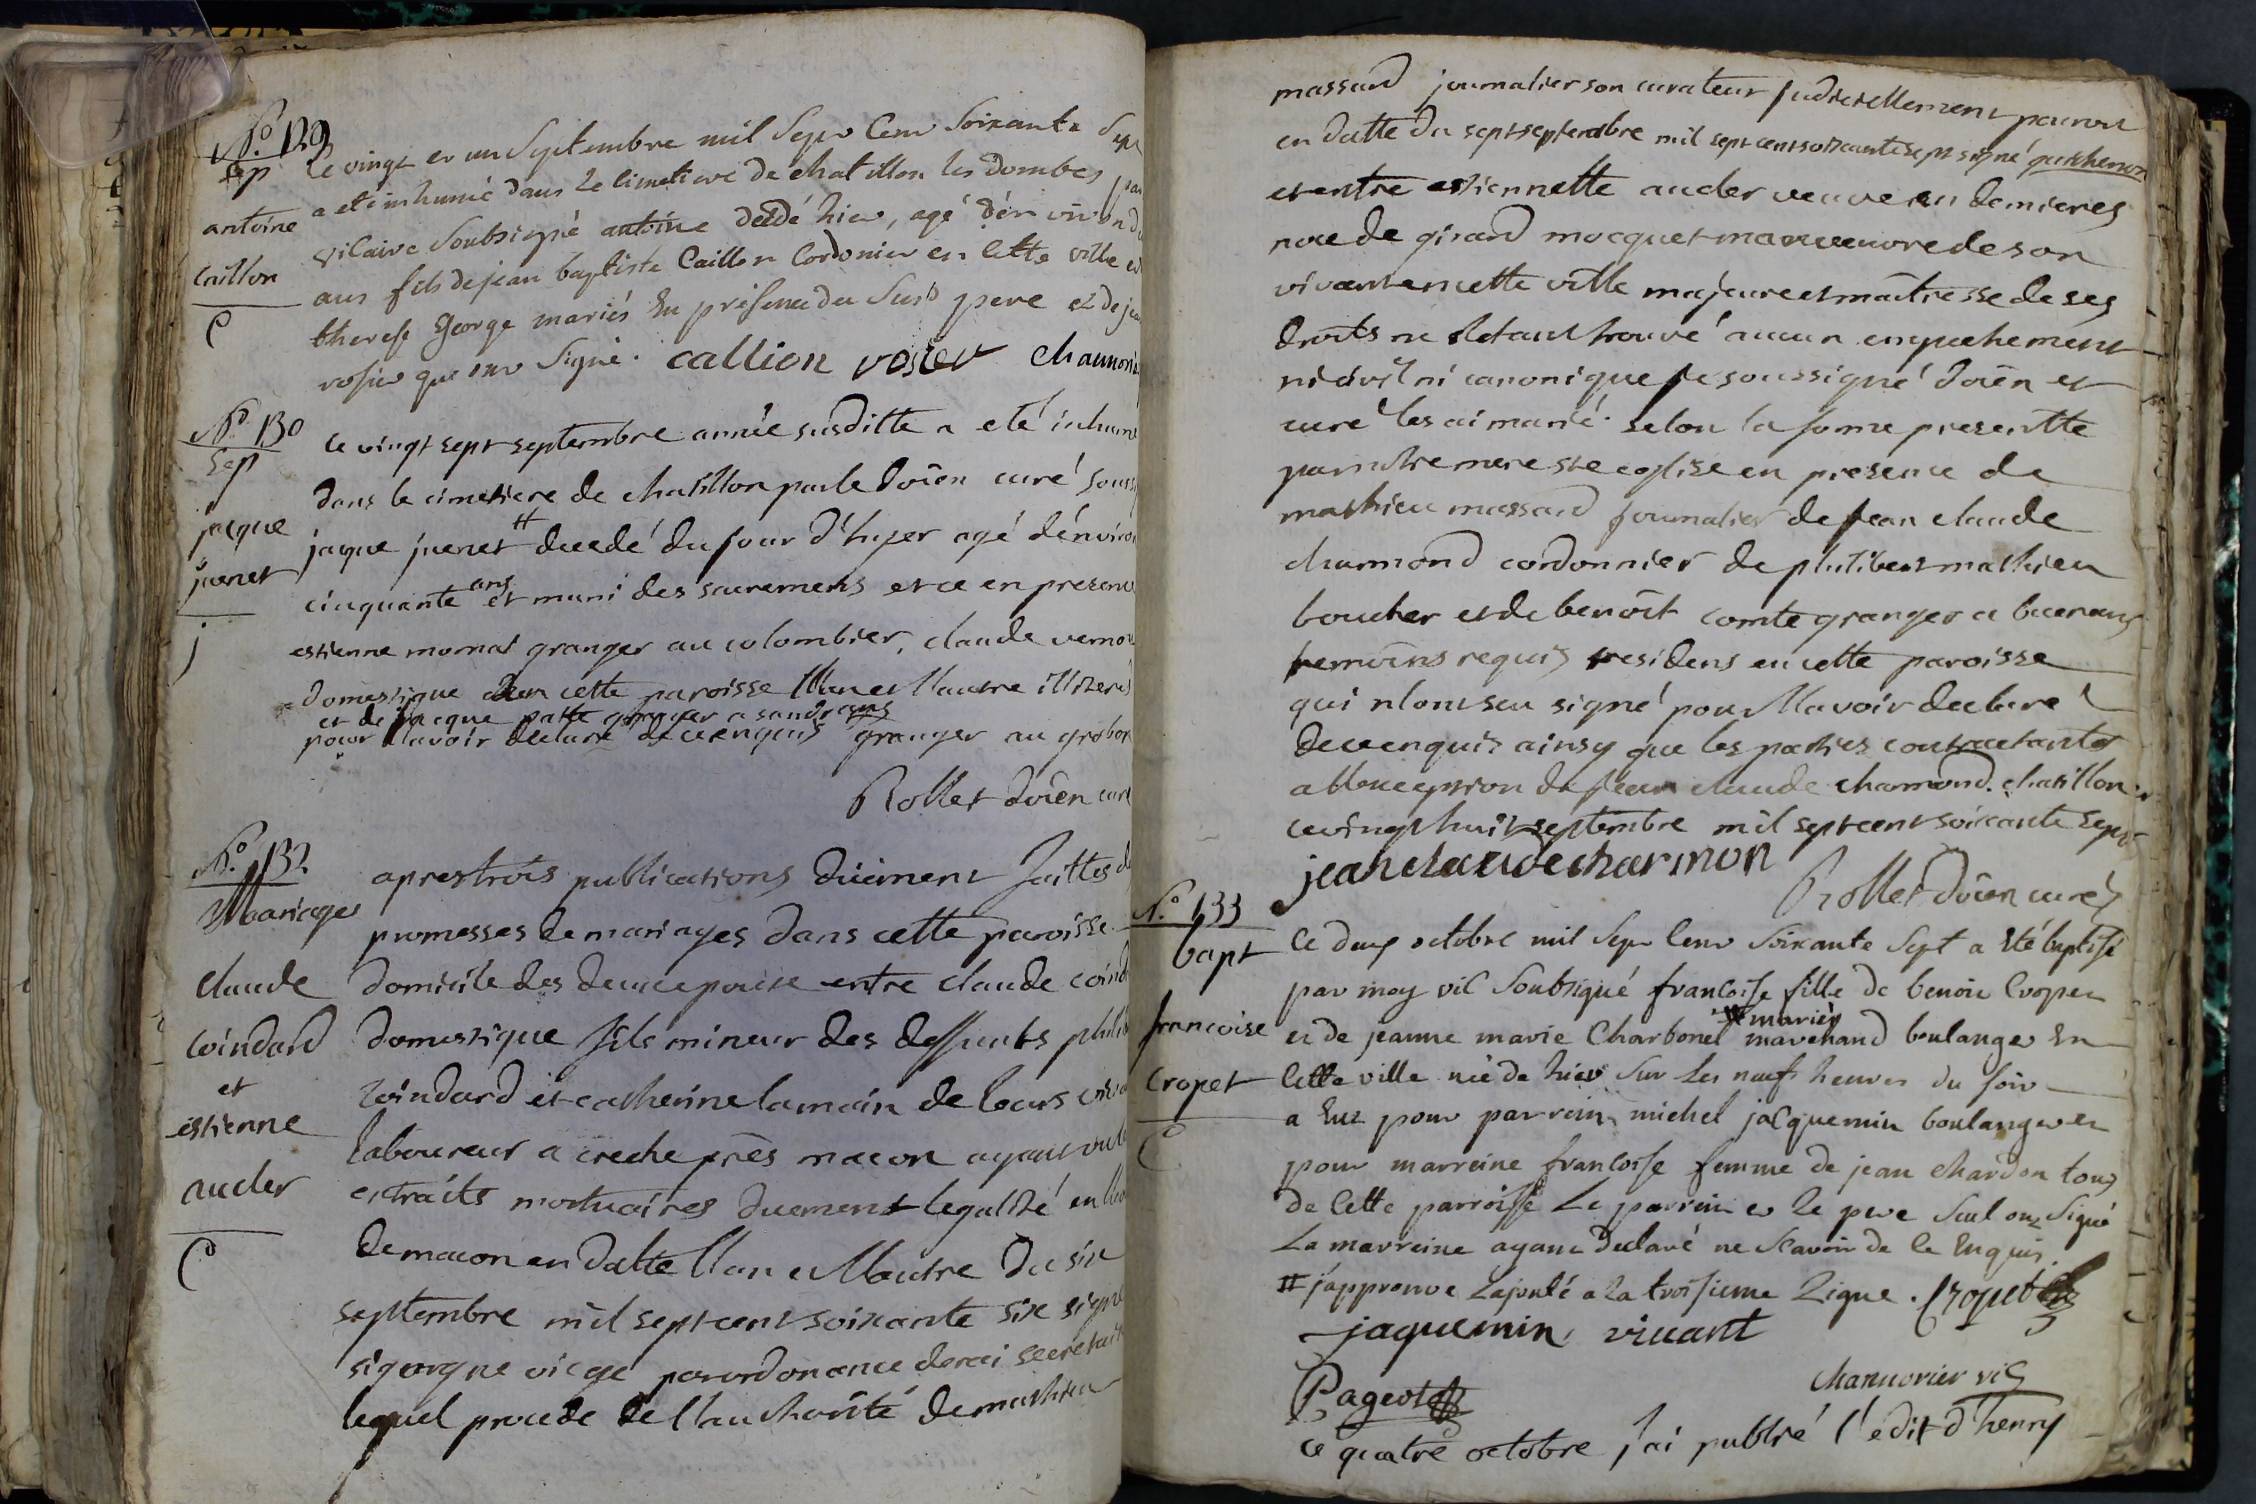 N.º 129
Sep
antoine
Caillon
C
le vingt et un Septembre mil Sept Cent Soixante Sept
a eté inhumé dans le cimetiere de chatillon les dombes par
vicaire Soubsigné antoine decdé hier, agé d'environ
ans fils de jean baptiste Caillon Cordonier en cette ville et
therese george mariés En presence du Susd pere et de jean
rosier qui ont Signé. callion rosier chanuori
N.º 130
Sep
jacque
juenet
j
ce vingt sept septembre année susditte a eté inhumé
dans le cimetiere de chatillon par le doïen curé souss
jaque juenet # decedé du jour d'hyer agé d'environ
cinquante ans et muni des sacremens et ce en presence
estienne mornat granger au colombier, claude vernou
domestique den cette paroisse llun et llautre illiteres
et de jacque patte granger a sandrans
pour llavoir declaré de ce enquis granger au grobon
Rollet doïen curé
N.º 132
Mariage
claude
Coindard
et
estienne
aucler
C
apres trois publications düement faittes de
promesses de mariages dans cette paroisse
domicile des deux epoux entre claude coind
domestique fils mineur des deffunts philib
Coindard et catherine lamain de leurs viv
laboureur a creche près macon ayant vu le
extraits mortuaires duement legalisé en
de macon en datte llun et llautre du six
septembre mil sept cent soixante six signé
sigorgne vic ge par ordonance derai secretaire
lequel procede de llauthorité de mathieu
massard journalier son curateur judiciellement pourvu
en datte du sept septembre mil sept cent soixante sept signé guichenon
et entre estiennette aucler veuve en dernieres
noce de girard mocquet manoeuvre de son
vivant en cette ville majeure et maîtresse de ses
droits ne sletant trouvé aucun empechement
ni civil ni canonique je soussigné doïen et
curé les ai marié selon la forme prescritte
par nôtre mere ste eglise en presence de
mathieu massard journalier de jean claude
charmond cordonnier de philibert mathieu
boucher et de benoît comte granger a bucenans
temoins requis residens en cette paroisse
qui nlont seu signé pour llavoir declaré
de ce enquis ainsy que les parties contractantes
a llexception de jean claude charmond. chatillon
ce vingt huit septembre mil sept cent soixante sept
jean claude charmon
Rollet doïen curé
N.º 133
bapt
francoise
Cropet
C
Ce deux octobre mil Sept Cent Soixante Sept a Eté baptisé
par moy vic Soubsigné francoise fille de benoit Cropet
# mariés
et de jeanne marie Charbonel marchand boulanger En
Cette ville née de hier Sur Les neufs heures du soir
a Eut pour parrein michel jacquemin boulanger et
pour marreine francoise femme de jean chardon tous
de Cette parroisse Le parrein et le pere Seul ont Signé
La marreine ayant declaré ne Scavoir de Ce Enquis
# j'approuve Lajouté a la troisieme Ligne. Cropet
jaquemin vicant
Pageot
chanuorier vic
ce quatre octobre j'ai publié l'édit d'henry